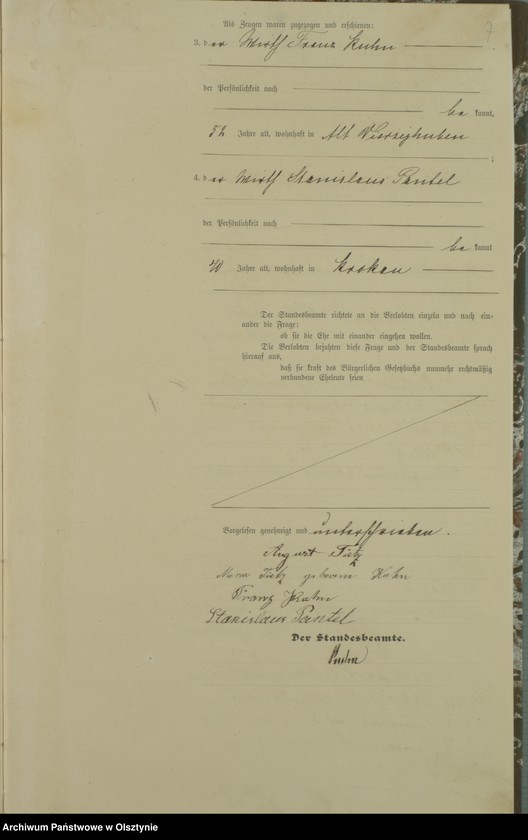 7
Als Zeugen waren zugezogen und erschienen:
3. der Wirth Franz Kuhn
der Persönlichkeit nach
be kannt,
52 Jahre alt, wohnhaft in Alt Vierzighuben
;
4. der Wirth Stanislaus Pantel
der Persönlichkeit nach
be kannt
40 Jahre alt, wohnhaft in Krokau
Der Standesbeamte richtete an die Verlobten einzeln und nach ein-
ander die Frage:
ob sie die Ehe mit einander eingehen wollen.
Die Verlobten bejahten diese Frage und der Standesbeamte sprach
hierauf aus,
daß sie kraft des Bürgerlichen Gesetzbuchs nunmehr rechtmäßig
verbundene Eheleute seien
Vorgelesen genehmigt und unterschrieben.
August Tietz
Tietz geborene Kuhn
Franz Kuhn
Stanislaus Pantel
Der Standesbeamte.
Archiwum Państwowe w Olsztynie